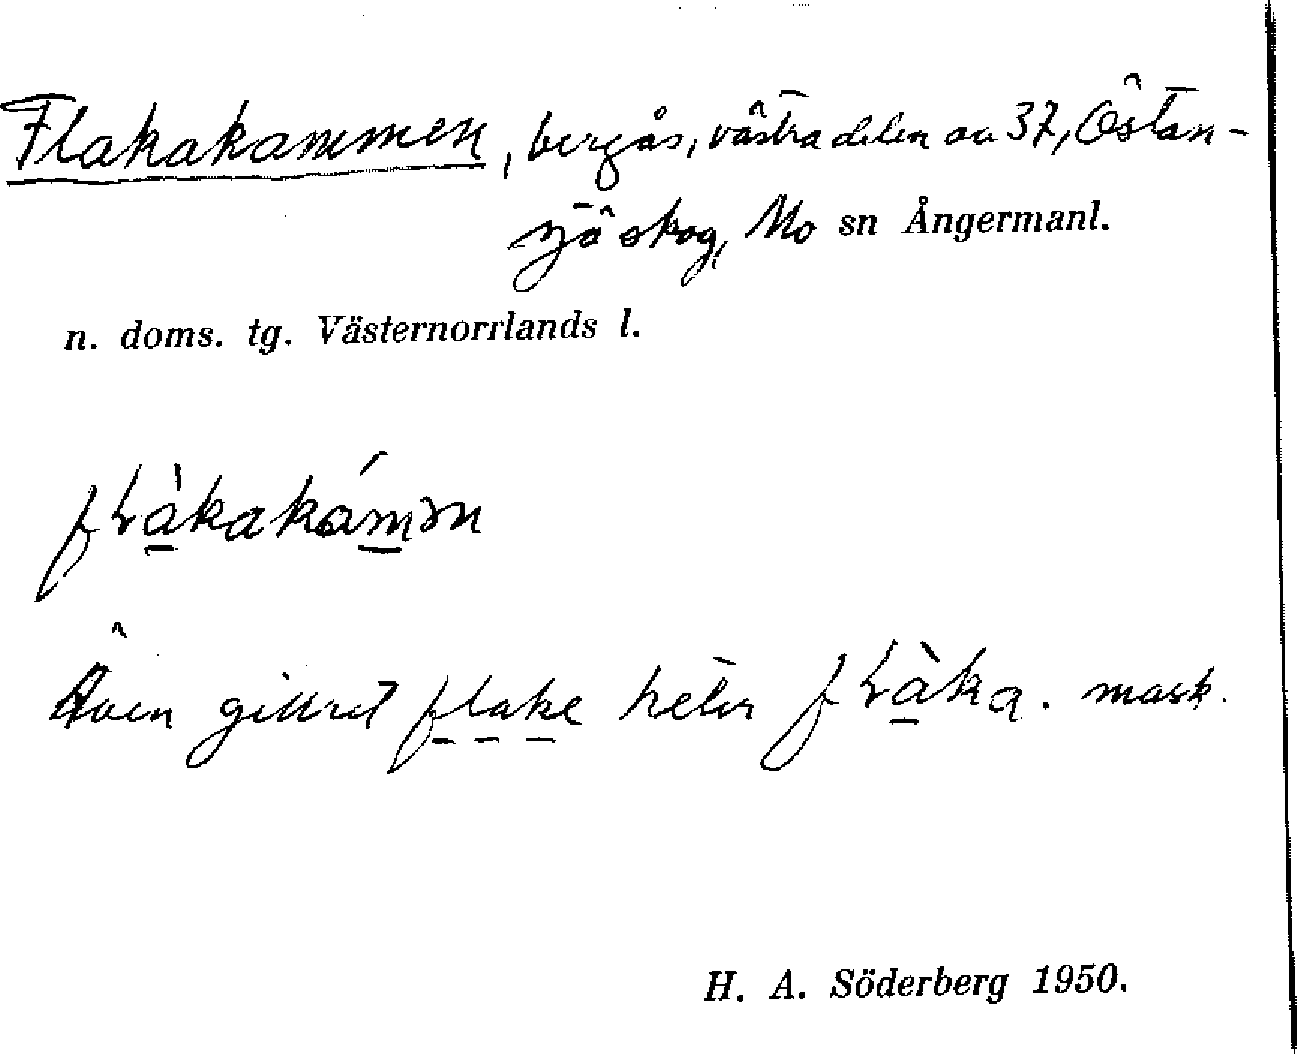 Flakakammen, bergås, västra delen av 37, Östan-
sjö skog, Mo sn Ångermanl.
n. doms. tg. Västernorrlands l.
fɽàkakámən
Även gillret flake heter fɽàka. mask.
H. A. Söderberg 1950.